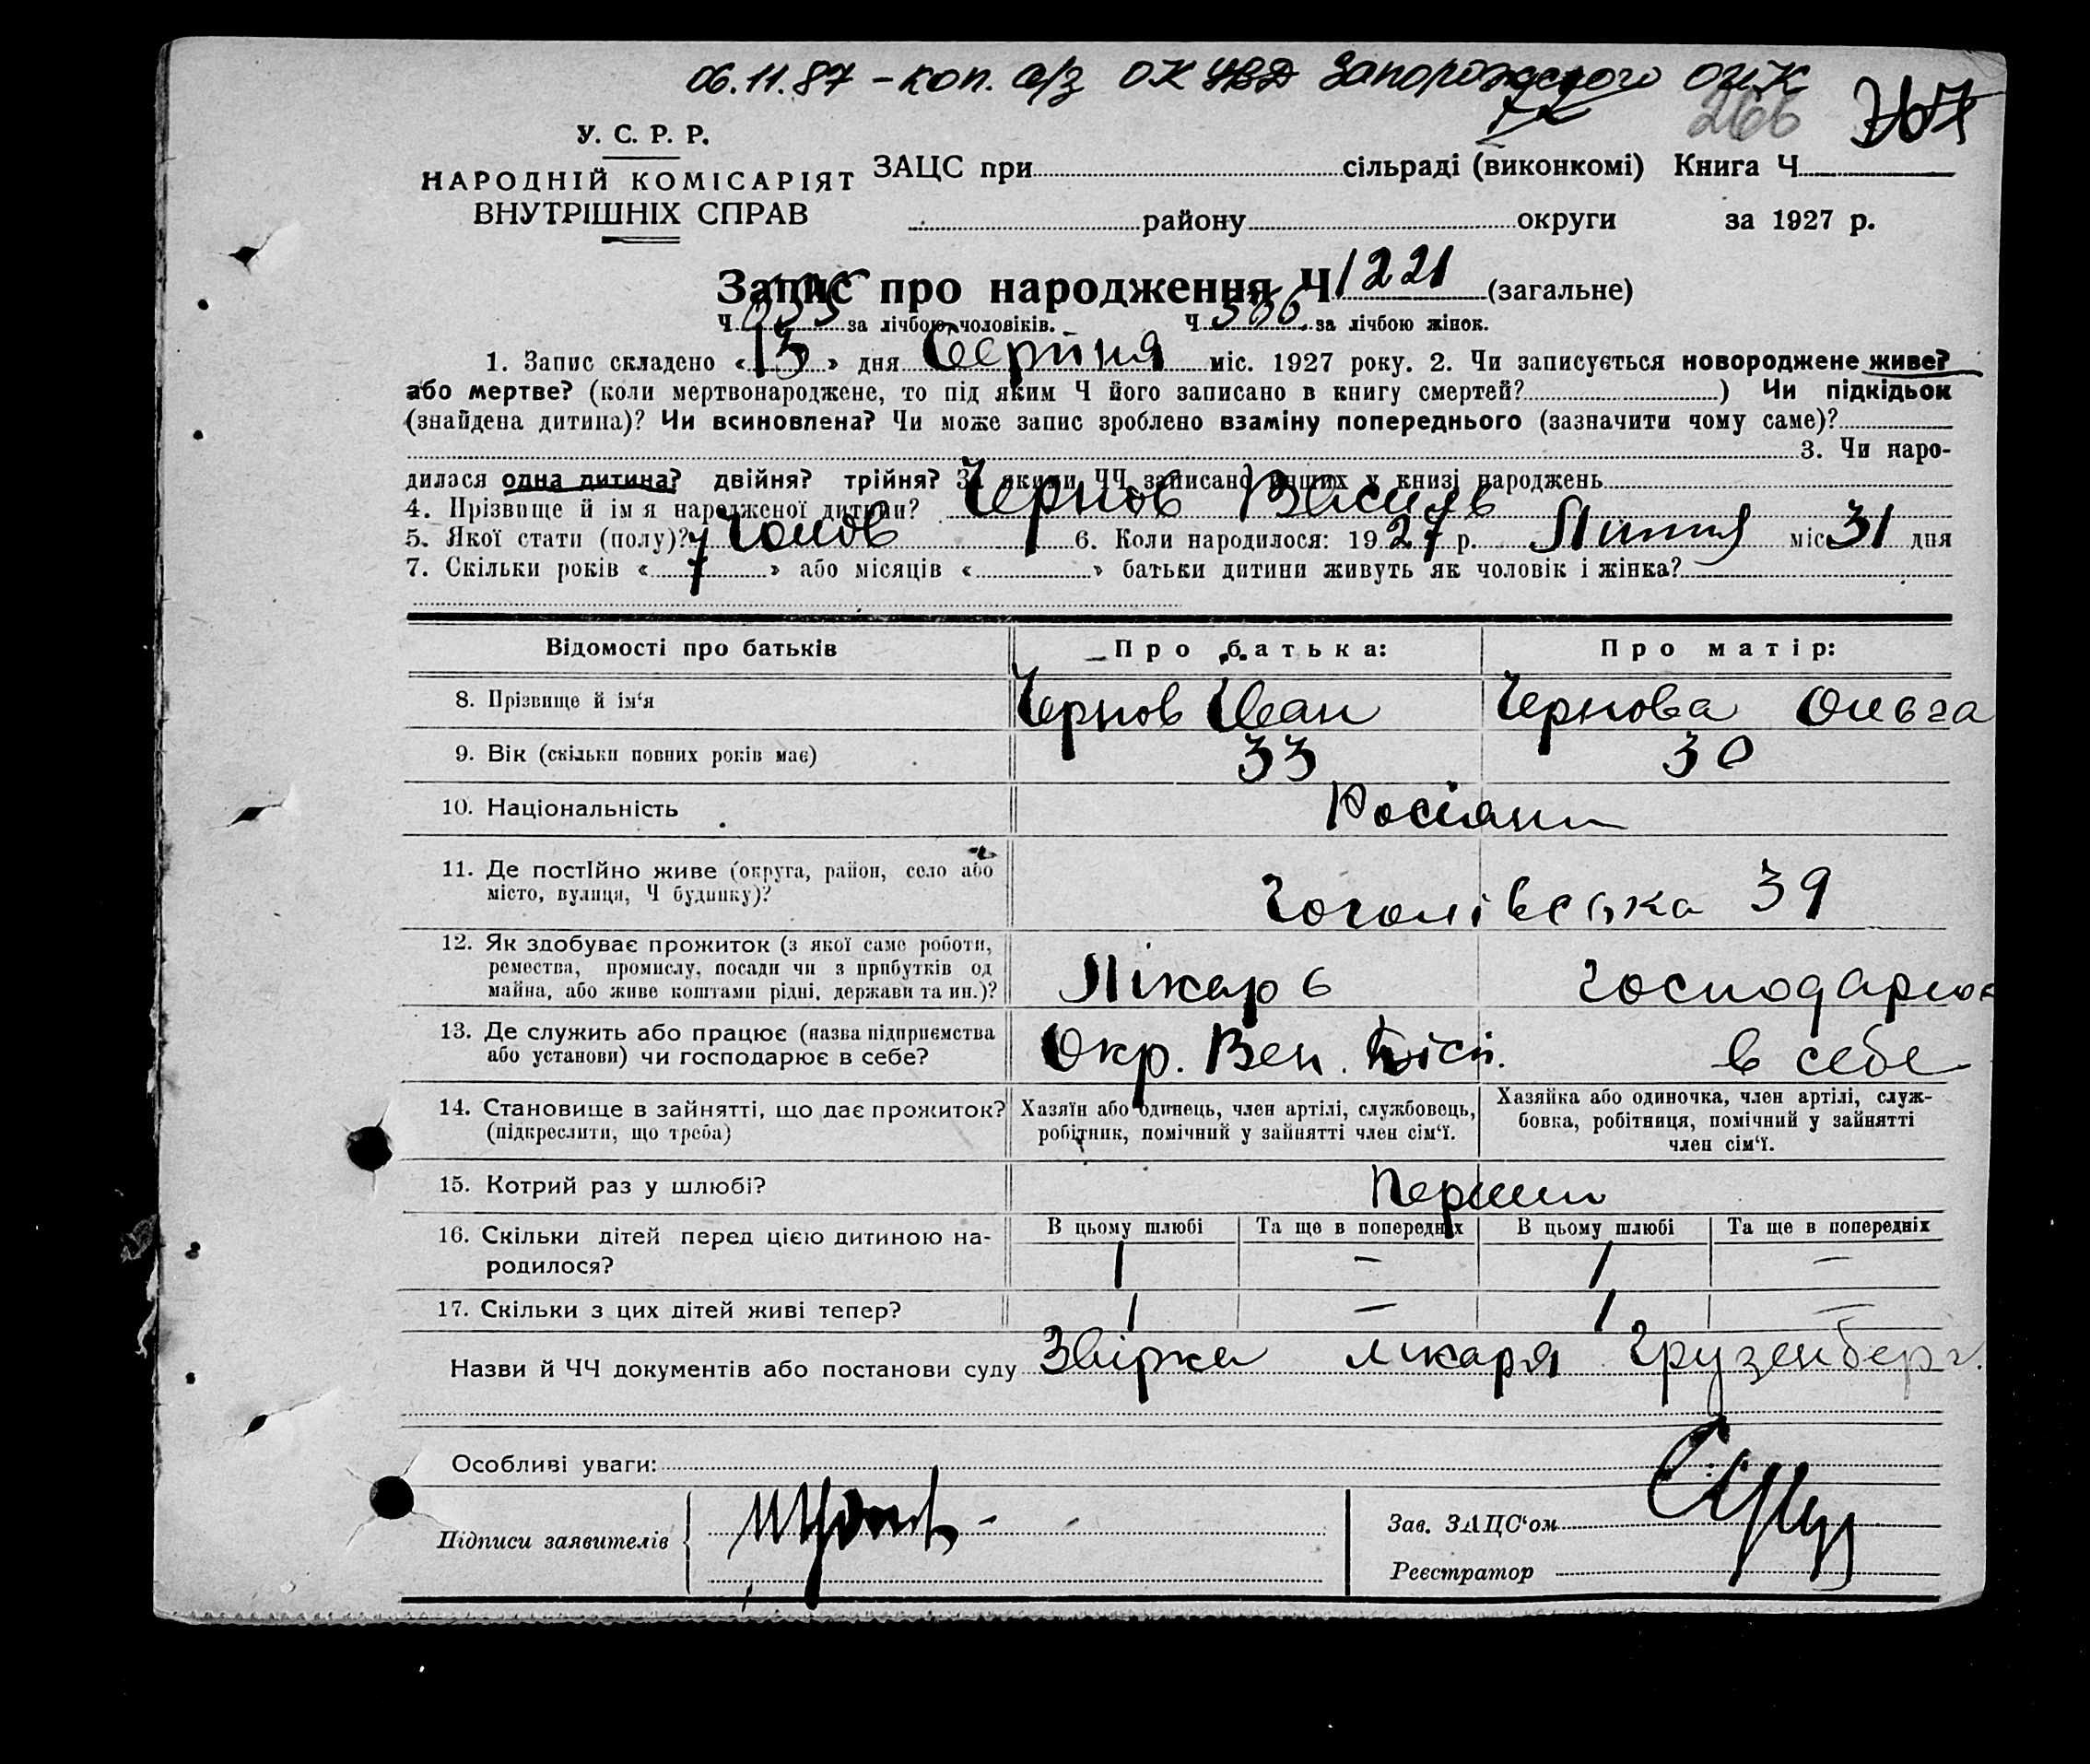 06.11.87 – коп. а/з ОК УВД Запорожского ОИК
266
У. С. Р. Р.
НАРОДНІЙ КОМІСАРІЯТ
ВНУТРІШНІХ СПРАВ
ЗАЦС при сільраді (виконкомі) Книга Ч
району округи за 1927 р.
Запис про народження Ч 1221 (загальне)
Ч за лічбою чоловіків. Ч 566 за лічбою жінок.
1. Запис складено « 13 » дня Серпня міс. 1927 року. 2. Чи записується новороджене живе?
або мертве? (коли мертвонароджене, то під яким Ч його записано в книгу смертей? ) Чи підкідьок
(знайдена дитина)? Чи всиновлена? Чи може запис зроблено взаміну попереднього (зазначити чому саме)?
3. Чи наро-
дилася одна дитина? двійня? трійня? За якими ЧЧ записано инших у книзі народжень
4. Прізвище й імя народженої дитини? Чернов Василь
5. Якої стати (полу)? Чолов 6. Коли народилося: 1927 р. Липня міс 31 дня
7. Скільки років « » або місяців « » батьки дитини живуть як чоловік і жінка?
Відомості про батьків Про батька: Про матір:
8. Прізвище й ім'я Чернов Іван Чернова Ольга
9. Вік (скільки повних років має) 33 30
10. Національність Росіяни
11. Де постійно живе (округа, район, село або
місто, вулиця, Ч будинку)? Гоголівська 39
12. Як здобуває прожиток (з якої саме роботи,
ремества, промислу, посади чи з прибутків од
майна, або живе коштами рідні, держави та ин.)? Лікарь господарює
13. Де служить або працює (назва підприємства
або установи) чи господарює в себе? Окр. Вен. в себе
14. Становище в зайнятті, що дає прожиток?
(підкреслити, що треба)
Хазяїн або одинець, член артілі, службовець,
робітник, помічний у зайнятті член сім'ї.
Хазяйка або одиночка, член артілі, служ-
бовка, робітниця, помічний у зайнятті
член сім'ї.
15. Котрий раз у шлюбі? Перший
16. Скільки дітей перед цією дитиною на-
родилося?
В цьому шлюбі Та ще в попередніх В цьому шлюбі Та ще в попередніх
1 – 1 –
17. Скільки з цих дітей живі тепер? 1 – 1 –
Назви й ЧЧ документів або постанови суду Звірка лікаря Грузенберг.
Особливі уваги:
Підписи заявителів
Зав. ЗАЦС'ом
Реєстратор